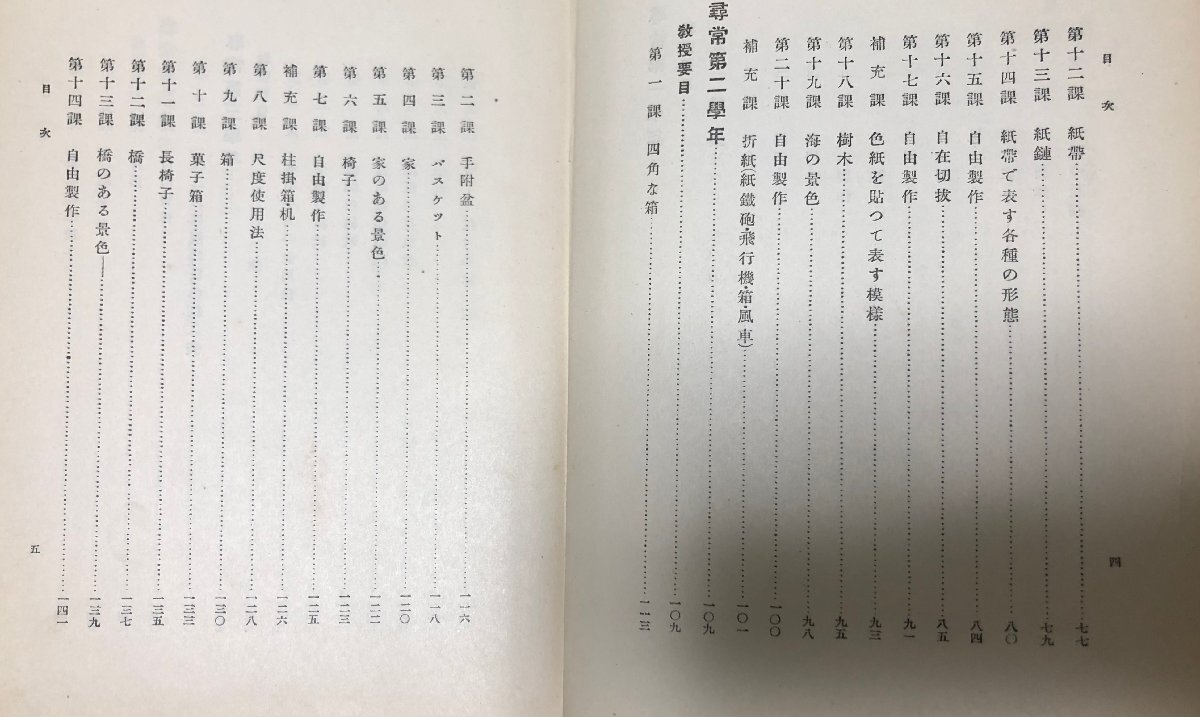 目次
四
第十二課 紙帶……七七
第十三課 紙鏈……七九
第十四課 紙帶で表す各種の形態……八〇
第十五課 自由製作……八四
第十六課 自在切拔……八五
第十七課 自由製作……九一
補充課 色紙を貼つて表す模樣……九三
第十八課 樹木……九五
第十九課 海の景色……九八
第二十課 自由製作……一〇〇
補充課 折紙(紙鐵砲・飛行機・箱・風車)……一〇一
尋常第二學年……一〇九
敎授要目……一〇九
第一課 四角な箱……一一三
第二課 手附盆……一一六
第三課 バスケツト……一一八
第四課 家……一二〇
第五課 家のある景色……一二二
第六課 椅子……一二三
第七課 自由製作……一二五
補充課 柱掛箱・机……一二六
第八課 尺度使用法……一二八
第九課 箱……一三〇
第十課 菓子箱……一三三
第十一課 長椅子……一三五
第十二課 橋……一三七
第十三課 橋のある景色……一三九
第十四課 自由製作……一四一
目次
五